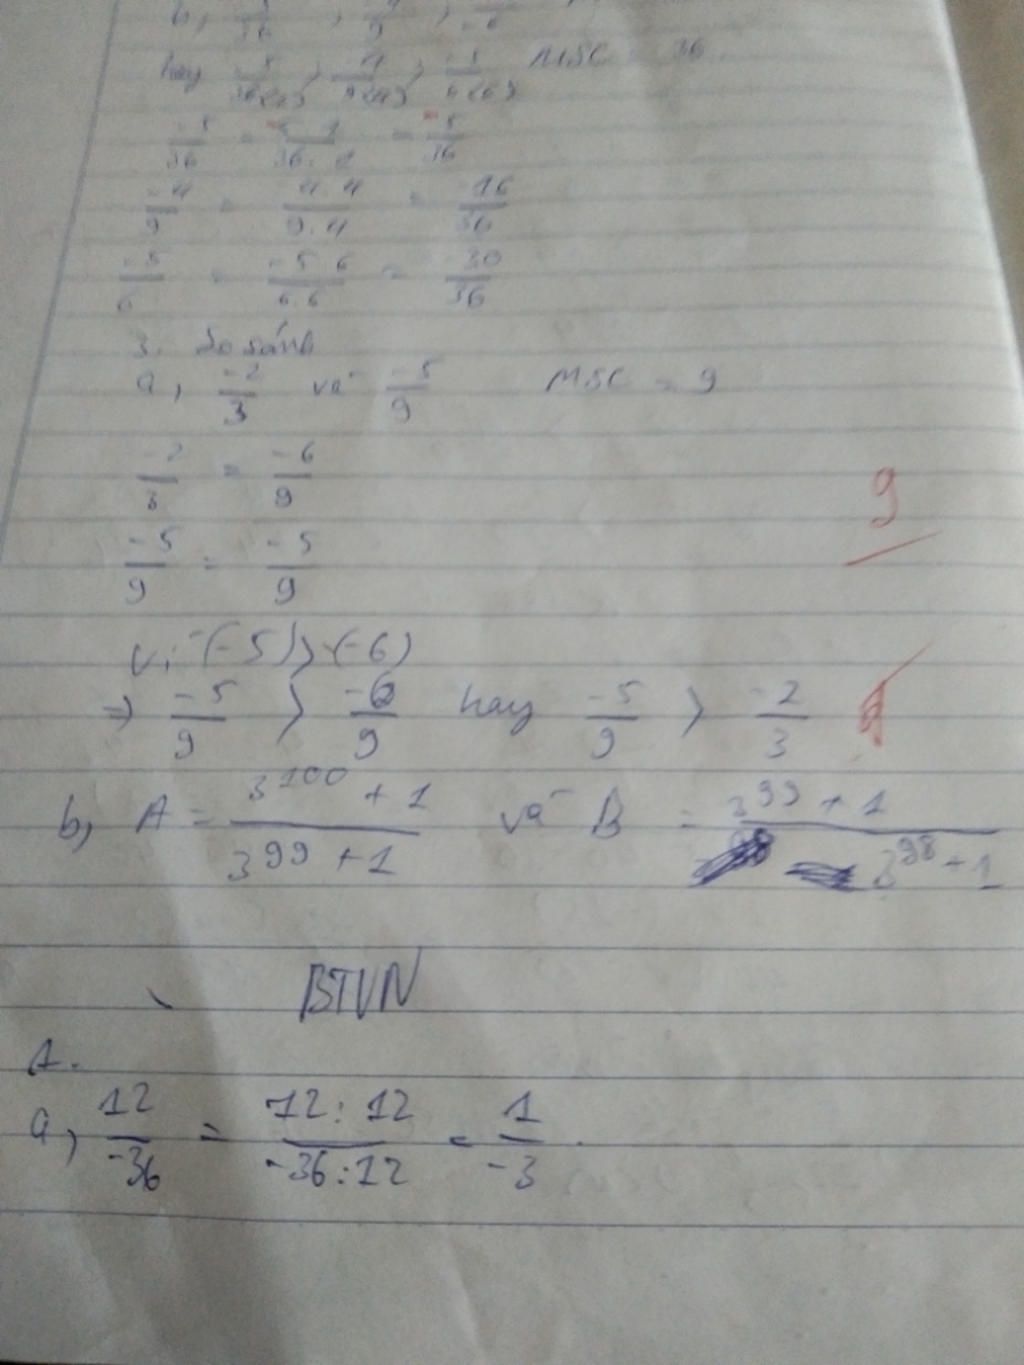 hay -5/36(1) ; -4/9(4) ; -5/6(6) MSC = 36
-5/36 = -5.1/36.1 = -5/36
-4/9 = 4.4/9.4 = -16/36
-5/6 = -5.6/6.6 = -30/36
3. So sánh
a, -2/3 và -5/9 MSC = 9
-2/3 = -6/9
-5/9 = -5/9
9
Vì (-5) > (-6)
⇒ -5/9 > -6/9 hay -5/9 > -2/3
b, A = 3^100 + 1 / 3^99 + 1 và B = 3^99 + 1 / 3^98 + 1
BTVN
1.
a, 12/-36 = 12:12/-36:12 = 1/-3